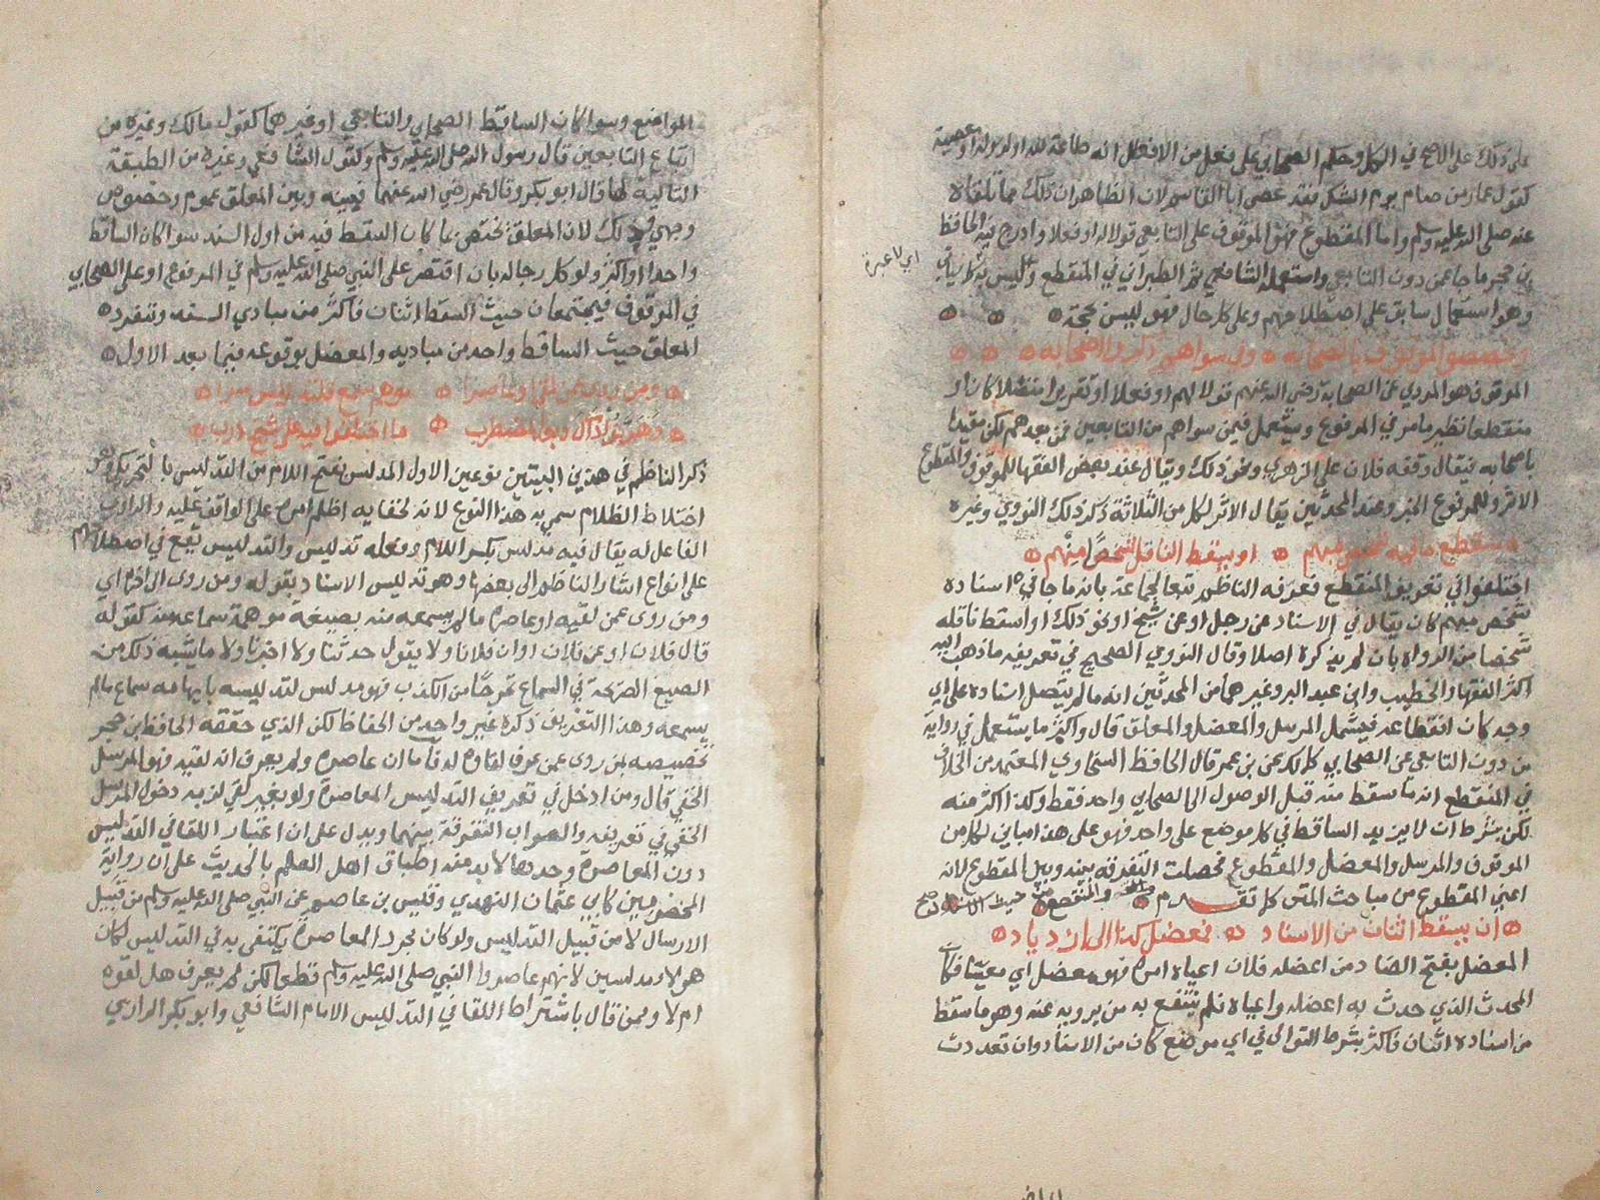 على ذلك على الاصح في الكل وحكم الصحابي على فعل من الافعال انه طاعة لله او لرسوله او معصية
كقول عمار من صام يوم الشك فقد عصى ابا القاسم لان الظاهر ان ذلك مما تلقاه
عنه صلى الله عليه وسلم واما المقطوع فهو الموقوف على التابعي قولا له او فعلا وادرج فيه الحافظ
بن حجر ما جا عن دون التابعي واستعمله الشافعي ثم الطبراني في المنقطع وليس
اي لا عبرة
وهو استعمال سابق على اصطلاحهم وعلى كل حال فهو ليس بحجة
وخصصوا الموقوف بالصحابه
الموقوف هو المروي عن الصحابة رضي الله عنهم قولا لهم او فعلا او تقريرا متصلا كان او
منقطعا نظير ما مر في المرفوع ويستعمل فيمن سواهم من التابعين فمن بعدهم لكن مقيدا
باصحابه فيقال وقفه فلان على الزهري ونحو ذلك ويقال عند بعض الفقها للموقوف والمقطوع
الاثر وللمرفوع الخبر وعند المحدثين يقال الاثر لكل من الثلاثة ذكر ذلك النووي وغيره
منقطع ما فيه شخص مبهم او يسقط الناقل شخصا منهم
اختلفوا في تعريف المنقطع فعرفه الناظم تبعا لجماعة بانه ما جا في اسناده
شخص مبهم كان يقال في الاسناد عن رجل او عن شيخ او نحو ذلك او اسقط ناقله
شخصا من الرواة بان لم يذكره اصلا وقال النووي الصحيح في تعريفه ما ذهب اليه
اكثر الفقها والخطيب وابن عبد البر وغيرهما من المحدثين انه ما لم يتصل اسناده على اي
وجه كان انقطاعه فيشمل المرسل والمعضل والمعلق قال واكثر ما يستعمل في رواية
من دون التابعي عن الصحابي كمالك عن بن عمر قال الحافظ السخاوي المعتمد من الخلاف
في المنقطع انه ما سقط منه قبل الوصول الى الصحابي واحد فقط وكذا اكثر منه
لكن بشرط ان لا يزيد الساقط في كل موضع على واحد فهو على هذا مباين لكل من
الموقوف والمرسل والمعضل والمقطوع فحصلت التفرقة بينه وبين المقطوع لانه
اعني المقطوع من مباحث المتن كما تقدم والمنقطع من مباحث الاسناد صح
ان يسقط اثنان من الاسناد فمعضل كذا الى ازدياد
المعضل بفتح الضاد من اعضله فلان اعياه امره فهو معضل اي معيا فكان
المحدث الذي حدث به اعضله واعياه فلم ينتفع به من يرويه عنه وهو ما سقط
من اسناده اثنان فاكثر بشرط التوالي في اي موضع كان من الاسناد وان تعددت
المواضع وسوا كان الساقط الصحابي والتابعي او غيرهما كقول مالك وغيره من
اتباع التابعين قال رسول الله صلى الله عليه وسلم وكقول الشافعي وغيره من الطبقة
التالية لها قال ابو بكر وقال عمر رضي الله عنهما فبينه وبين المعلق عموم وخصوص
وجهي وذلك لان المعلق يختص بما كان السقط فيه من اول السند سوا كان الساقط
واحدا او اكثر ولو كل رجاله بان اقتصر على النبي صلى الله عليه وسلم في المرفوع او على الصحابي
في الموقوف فيجتمعان حيث السقط اثنان فاكثر من مبادي السند وتنفرد
المعلق حيث الساقط واحد من مباديه والمعضل بوقوعه فيما بعد الاول
ومن روى عمن لقي او عاصرا يوهم سمع فلتدليس سرا
ما اختلفوا فيه على شيخ
ذكر الناظم في هذين البيتين نوعين الاول المدلس بفتح اللام من التدليس بالتحريك وهو
اختلاط الظلام سمي به هذا النوع لانه لخفايه اظلم امره على الواقف عليه والراوي
الفاعل له يقال فيه مدلس بكسر اللام وفعله تدليس والتدليس يقع في اصطلاحهم
على انواع اشار الناظم الى بعضها وهو تدليس الاسناد بقوله ومن روى الى اخره اي
ومن روى عمن لقيه او عاصره ما لم يسمعه منه بصيغة موهمة سماعه منه كقوله
قال فلان او عن فلان او ان فلانا ولا يقول حدثنا ولا اخبرنا ولا ما يشبه ذلك من
الصيغ الصريحة في السماع تحرجا من الكذب فهو مدلس لتدليسه بايهامه سماع ما لم
يسمعه وهذا التعريف ذكره غير واحد من الحفاظ لكن الذي حققه الحافظ بن حجر
تخصيصه بمن روى عمن عرف لقاوه له فاما ان عاصره ولم يعرف انه لقيه فهو المرسل
الخفي قال ومن ادخل في تعريف التدليس المعاصرة ولو بغير لقي لزمه دخول المرسل
الخفي في تعريفه والصواب التفرقة بينهما ويدل على ان اعتبار اللقا في التدليس
دون المعاصرة وحدها لا بد منه اطباق اهل العلم بالحديث على ان رواية
المخضرمين كابي عثمان النهدي وقيس بن عاصم عن النبي صلى الله عليه وسلم من قبيل
الارسال لا من قبيل التدليس ولو كان مجرد المعاصرة يكتفى به في التدليس لكان
هولا مدلسين لانهم عاصروا النبي صلى الله عليه وسلم قطعا لكن لم يعرف هل لقوه
ام لا وممن قال باشتراط اللقا في التدليس الامام الشافعي وابو بكر الرازي